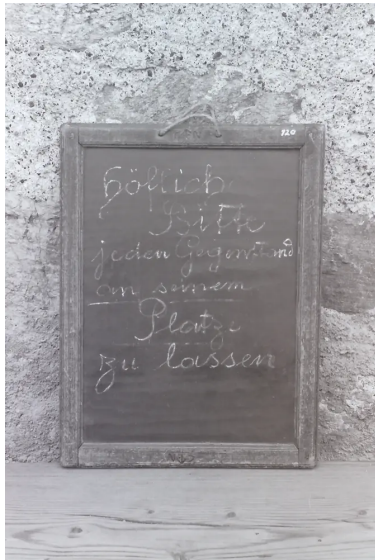 120
höflich
Bitte
jeden Gegenstand
an seinem
Platze
zu lassen